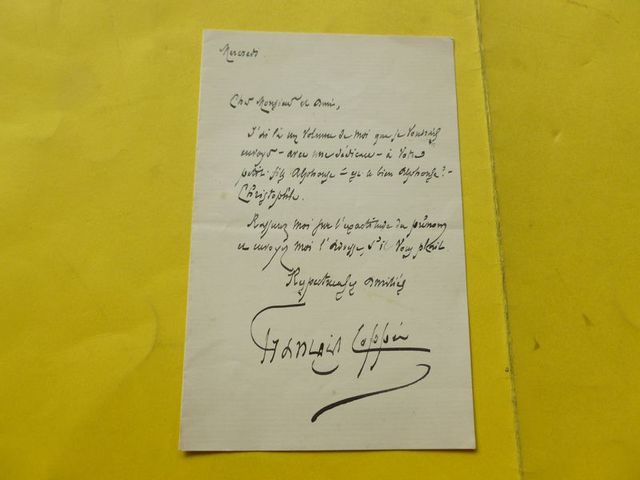 Mercredi
Cher Monsieur et Ami,
J'ai là un volume de moi que je voudrais
envoyer - avec une dédicace - à votre
petit-fils Alphonse - est-ce bien Alphonse? -
Christophle.
Rassurez moi sur l'exactitude du prénom
et envoyez moi l'adresse, s'il vous plaît.
Respectueuses amitiés
François Coppée